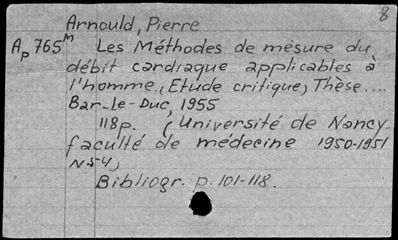 8
Arnould, Pierre
Ap 765M Les Méthodes de mesure du
débit cardiaque applicables à
l'homme. (Etude critique) Thèse....
Bar-le-Duc, 1955
118p. (Université de Nancy
faculté de médecine 1950-1951
N54)
Bibliogr. p. 101-118.